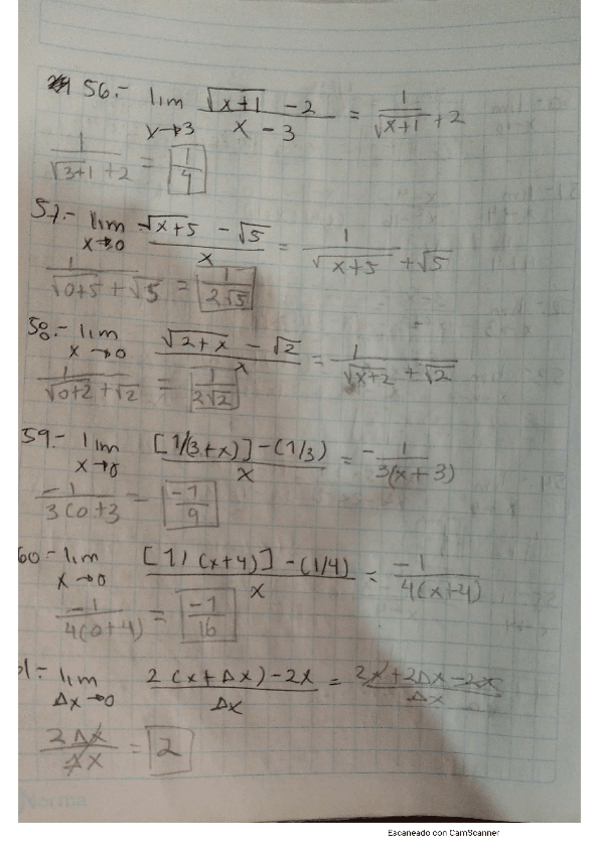 56.- lim √(x+1) - 2 / x - 3 = 1 / √(x+1) + 2
x→3
1 / √(3+1) + 2 = 1/4
57.- lim √(x+5) - √5 / x = 1 / √(x+5) + √5
x→0
1 / √(0+5) + √5 = 1 / 2√5
58.- lim √(2+x) - √2 / x = 1 / √(x+2) + √2
x→0
1 / √(0+2) + √2 = 1 / 2√2
59.- lim [1/(3+x)] - (1/3) / x = - 1 / 3(x+3)
x→0
-1 / 3(0+3 = -1/9
60- lim [1/(x+4)] - (1/4) / x = -1 / 4(x+4)
x→0
-1 / 4(0+4) = -1/16
1- lim 2(x+Δx) - 2x / Δx = 2x + 2Δx - 2x / Δx
Δx→0
2Δx / Δx = 2
Norma
Escaneado con CamScanner